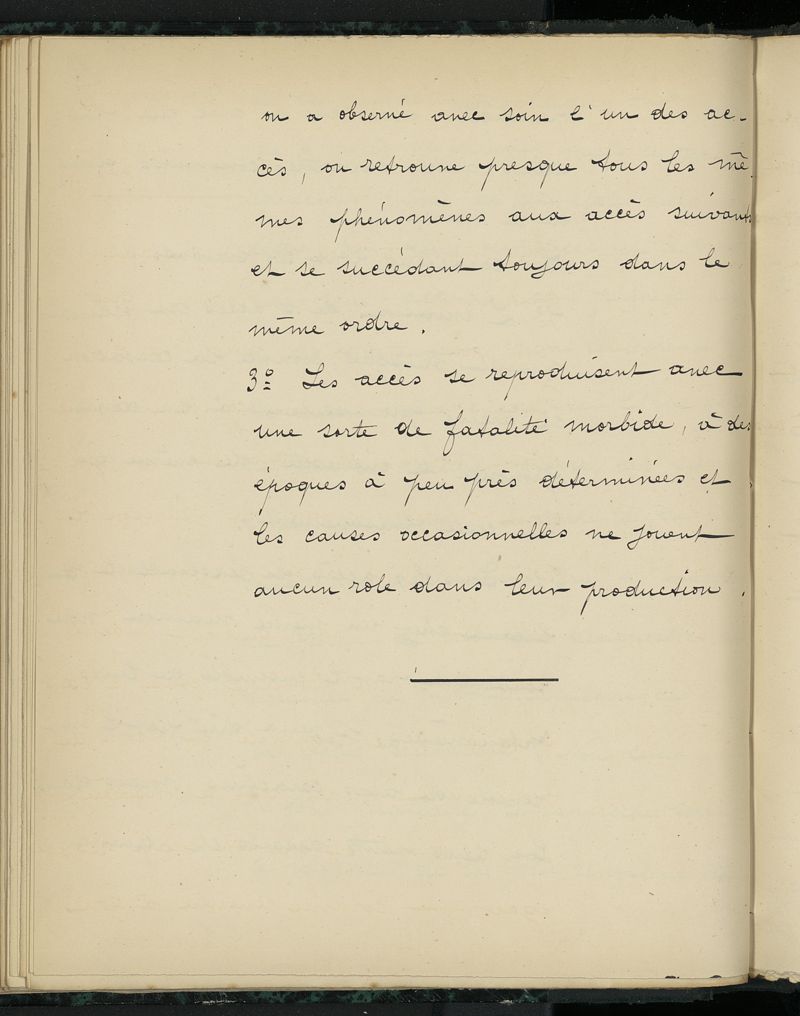 on a observé avec soin l'un des ac-
cès, on retrouve presque tous les mê-
mes phénomènes aux accès suivants
et se succédant toujours dans le
même ordre.
3º Les accès se reproduisent avec
une sorte de fatalité morbide, à des
époques à peu près déterminées et
les causes occasionnelles ne jouent
aucun role dans leur production.